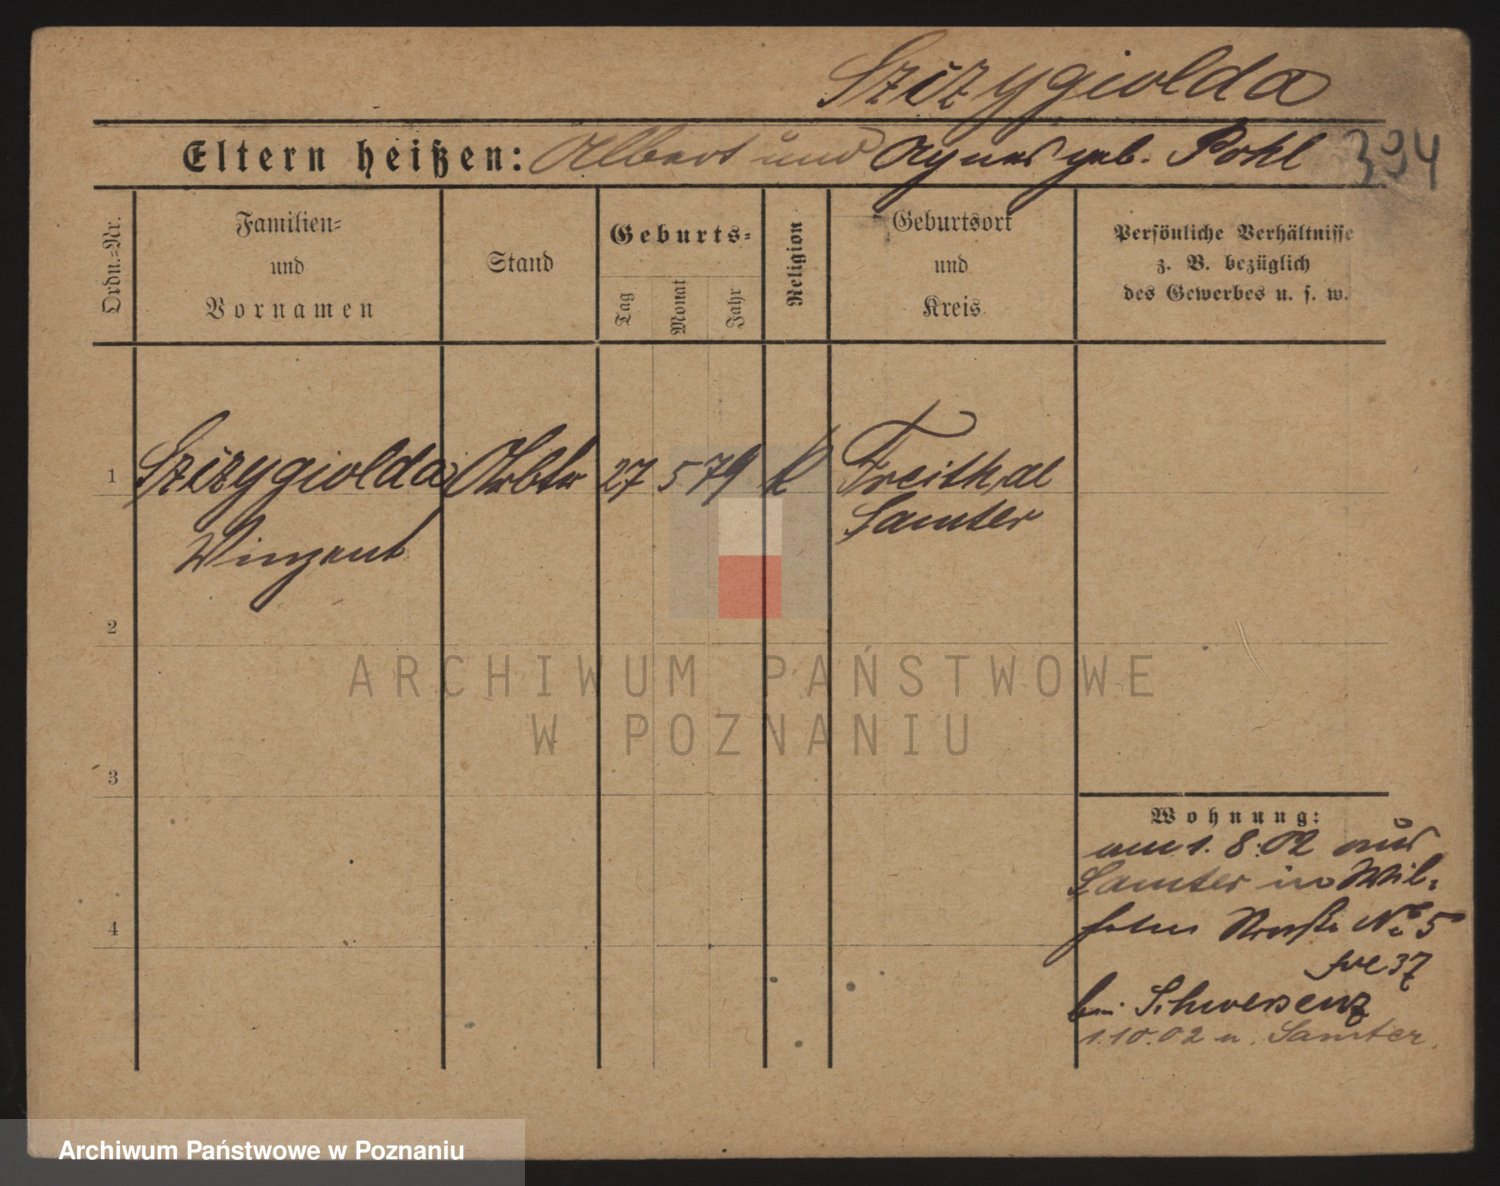 Szizygiolda
Eltern heißen: Albert und Agnes geb. Pohl 394
Ordn.=Nr.
Familien=
und
Vornamen
Stand
Geburts=
Tag
Monat
Jahr
Religion
Geburtsort
und
Kreis
Persönliche Verhältnisse
z. B. bezüglich
des Gewerbes u. s. w.
1 Szizygiolda Arbtr 27 5 79 k Freithal
Samter
Winzent
2
3
4
Wohnung:
am 1. 8. 02 aus
Samter in Wil=
helm Straße No 5
37
bei Schwersenz
1.10.02 n. Samter.
ARCHIWUM PAŃSTWOWE
W POZNANIU
Archiwum Państwowe w Poznaniu